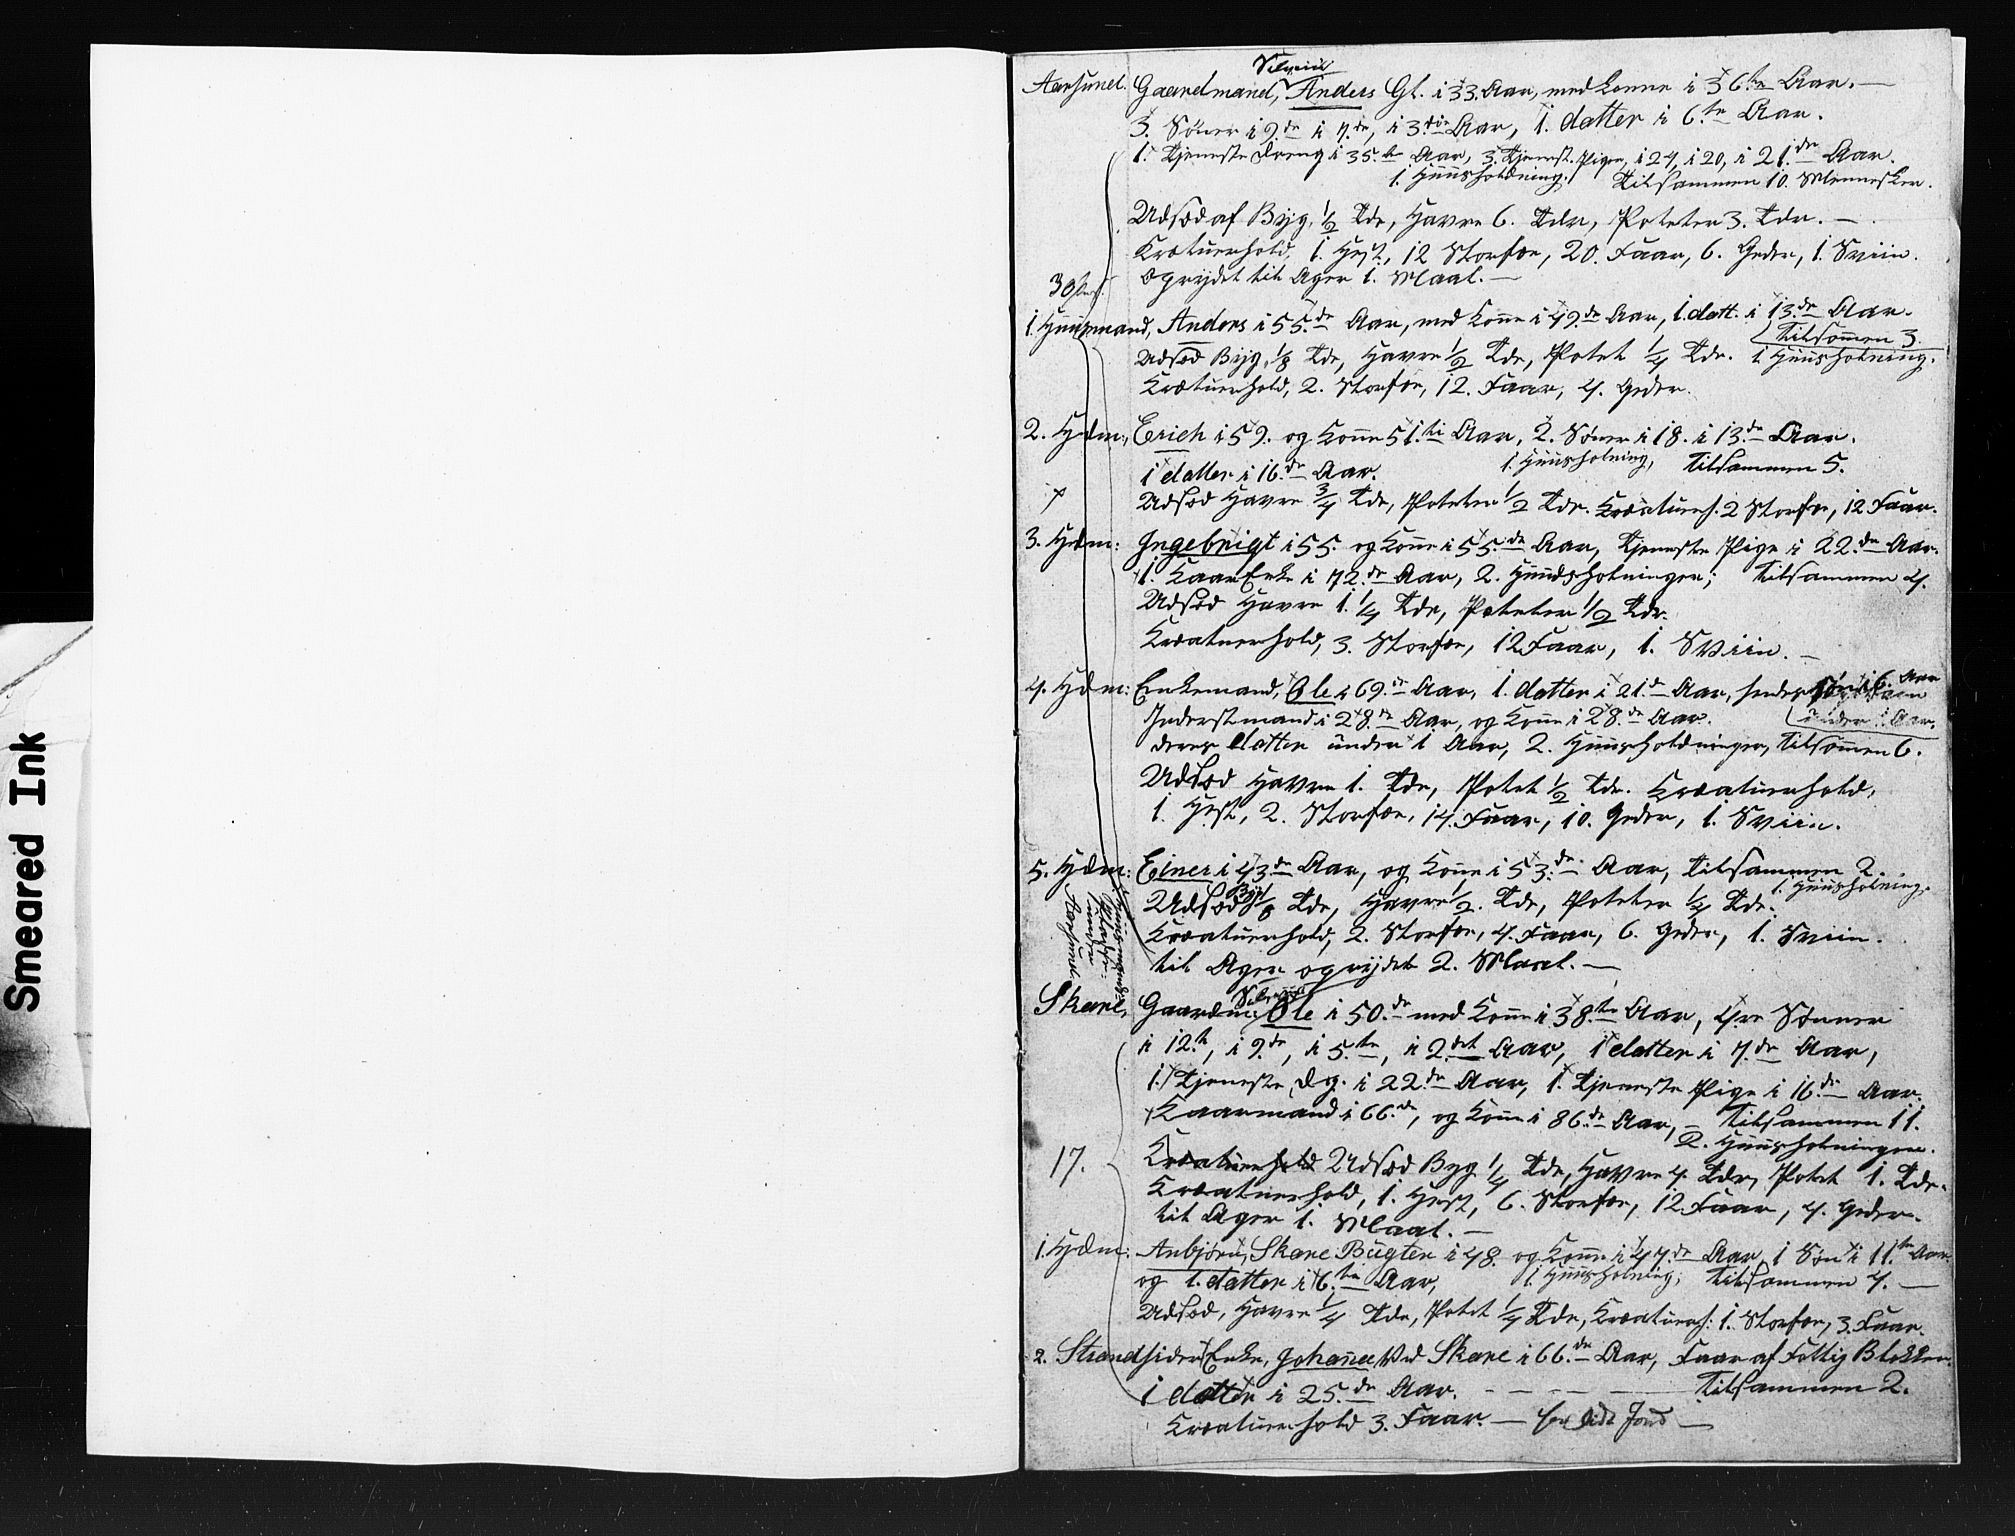 Smeared Ink
Aarsund. Gaardmand, Anders Gl. i 33. Aar, med Konne i 36te Aar. —
3. Sønner i 9.de i 7.de, i 3.die Aar, 1. datter i 6.te Aar.
1. Tjeneste Dreng i 35.te Aar, 3. Tjenest. Piger, i 24, i 20, i 21.de Aar.
1. Huusholdning. Tilsammen 10. Mennesker.
Udsæd af Byg, 1/2 Tde, Havre 6. Tdr, Poteter 3. Tdr. —
Kræturhold, 1. Hest, 12 Storfæ, 20. Faar, 6. Geder, 1. Sviin.
Oprydet til Ager 1. Maal. —
30
1. Huusmand, Anders i 55.de Aar, med Konne i 49.de Aar, 1. datt. i 13.de Aar.
Tilsamen 3.
Udsæd Byg, 1/8 Tde, Havre 1/2 Tde, Potet 1/4 Tde. 1 Huusholning.
Kræturhold, 2. Storfæ, 12. Faar, 4. Geder.
2. Hdm: Erich i 59. og Konne 51.ti Aar, 2. Sønner i 18. i 13.de Aar.
1 datter i 16.de Aar. 1. Huusholning, Tilsammen 5.
Udsæd Havre 3/4 Tde, Poteter 1/2 Tde. Kreaturh. 2 Storfæ, 12 Faar.
3. Hdm: Ingebrigt i 55. og Konne i 55.de Aar, Tjeneste Pige i 22.de Aar.
1. Kaar Enke i 72.de Aar, 2. Huusholninger; Tilsammen 4.
Udsæd Havre 1. 1/4 Tde, Poteter 1/2 Tdr.
Kreaturhold, 3. Storfæ, 12 Faar, 1. Sviin. —
4. Hdm: Enkemand, Ole i 69.de Aar, 1. datter i 21.de Aar, 6 Aar
Inderstmand i 28.de Aar, og Konne i 28.de Aar. under 1. Aar.
deres datter under 1 Aar, 2. Huusholdninger, Tilsamen 6.
Udsæd Havre 1. Tde, Potet 1/2 Tde. Kreaturhold,
1. Hest, 2. Storfæ, 14. Faar, 10. Geder, 1. Sviin.
5. Hdm: Einer i 43de Aar, og Konne i 53.de Aar, Tilsammen 2.
1. Huusholning.
Udsæd Byg 1/8 Tde, Havre 1/2. Tde, Poteter 1/4 Tde.
Kreaturhold, 2. Storfæ, 4. Faar, 6. Geder, 1. Sviin.
til Ager oprydet 2. Maal. —
Skare, Gaardm: Ole i 50.de med Konne i 38.te Aar, 4re Sønner
i 12.te, i 9.de, i 5.te, i 2.det Aar, 1 datter i 7.de Aar,
1. Tjeneste Dg. i 22.de Aar, 1. Tjeneste Pige i 16.de Aar.
Kaarmand i 66.de, og Konne i 86.de Aar, — Tilsammen 11.
2. Huusholninger.
17. Kreaturhold Udsæd Byg 1/4 Tde, Havre 4. Tdr, Potet 1. Tde.
Kreaturhold, 1. Hest, 6. Storfæ, 12. Faar, 4. Geder.
til Ager 1. Maal. —
1. Hdm: Anbjørn, Skare Bugten i 48. og Konne i 47.de Aar, 1 Søn i 11.te Aar.
og 1. datter i 6.te Aar, 1 Huusholning; Tilsammen 4. —
Udsæd, Havre 1/4 Tde, Potet 1/4 Tde, Kreaturh: 1. Storfæ, 3. Faar.
2. Strandsider Enke, Johanna ved Skare i 66.de Aar, Faar af Fattig
1 datter i 25.de Aar. — — — — Tilsammen 2.
Kreaturhold 3. Faar. —